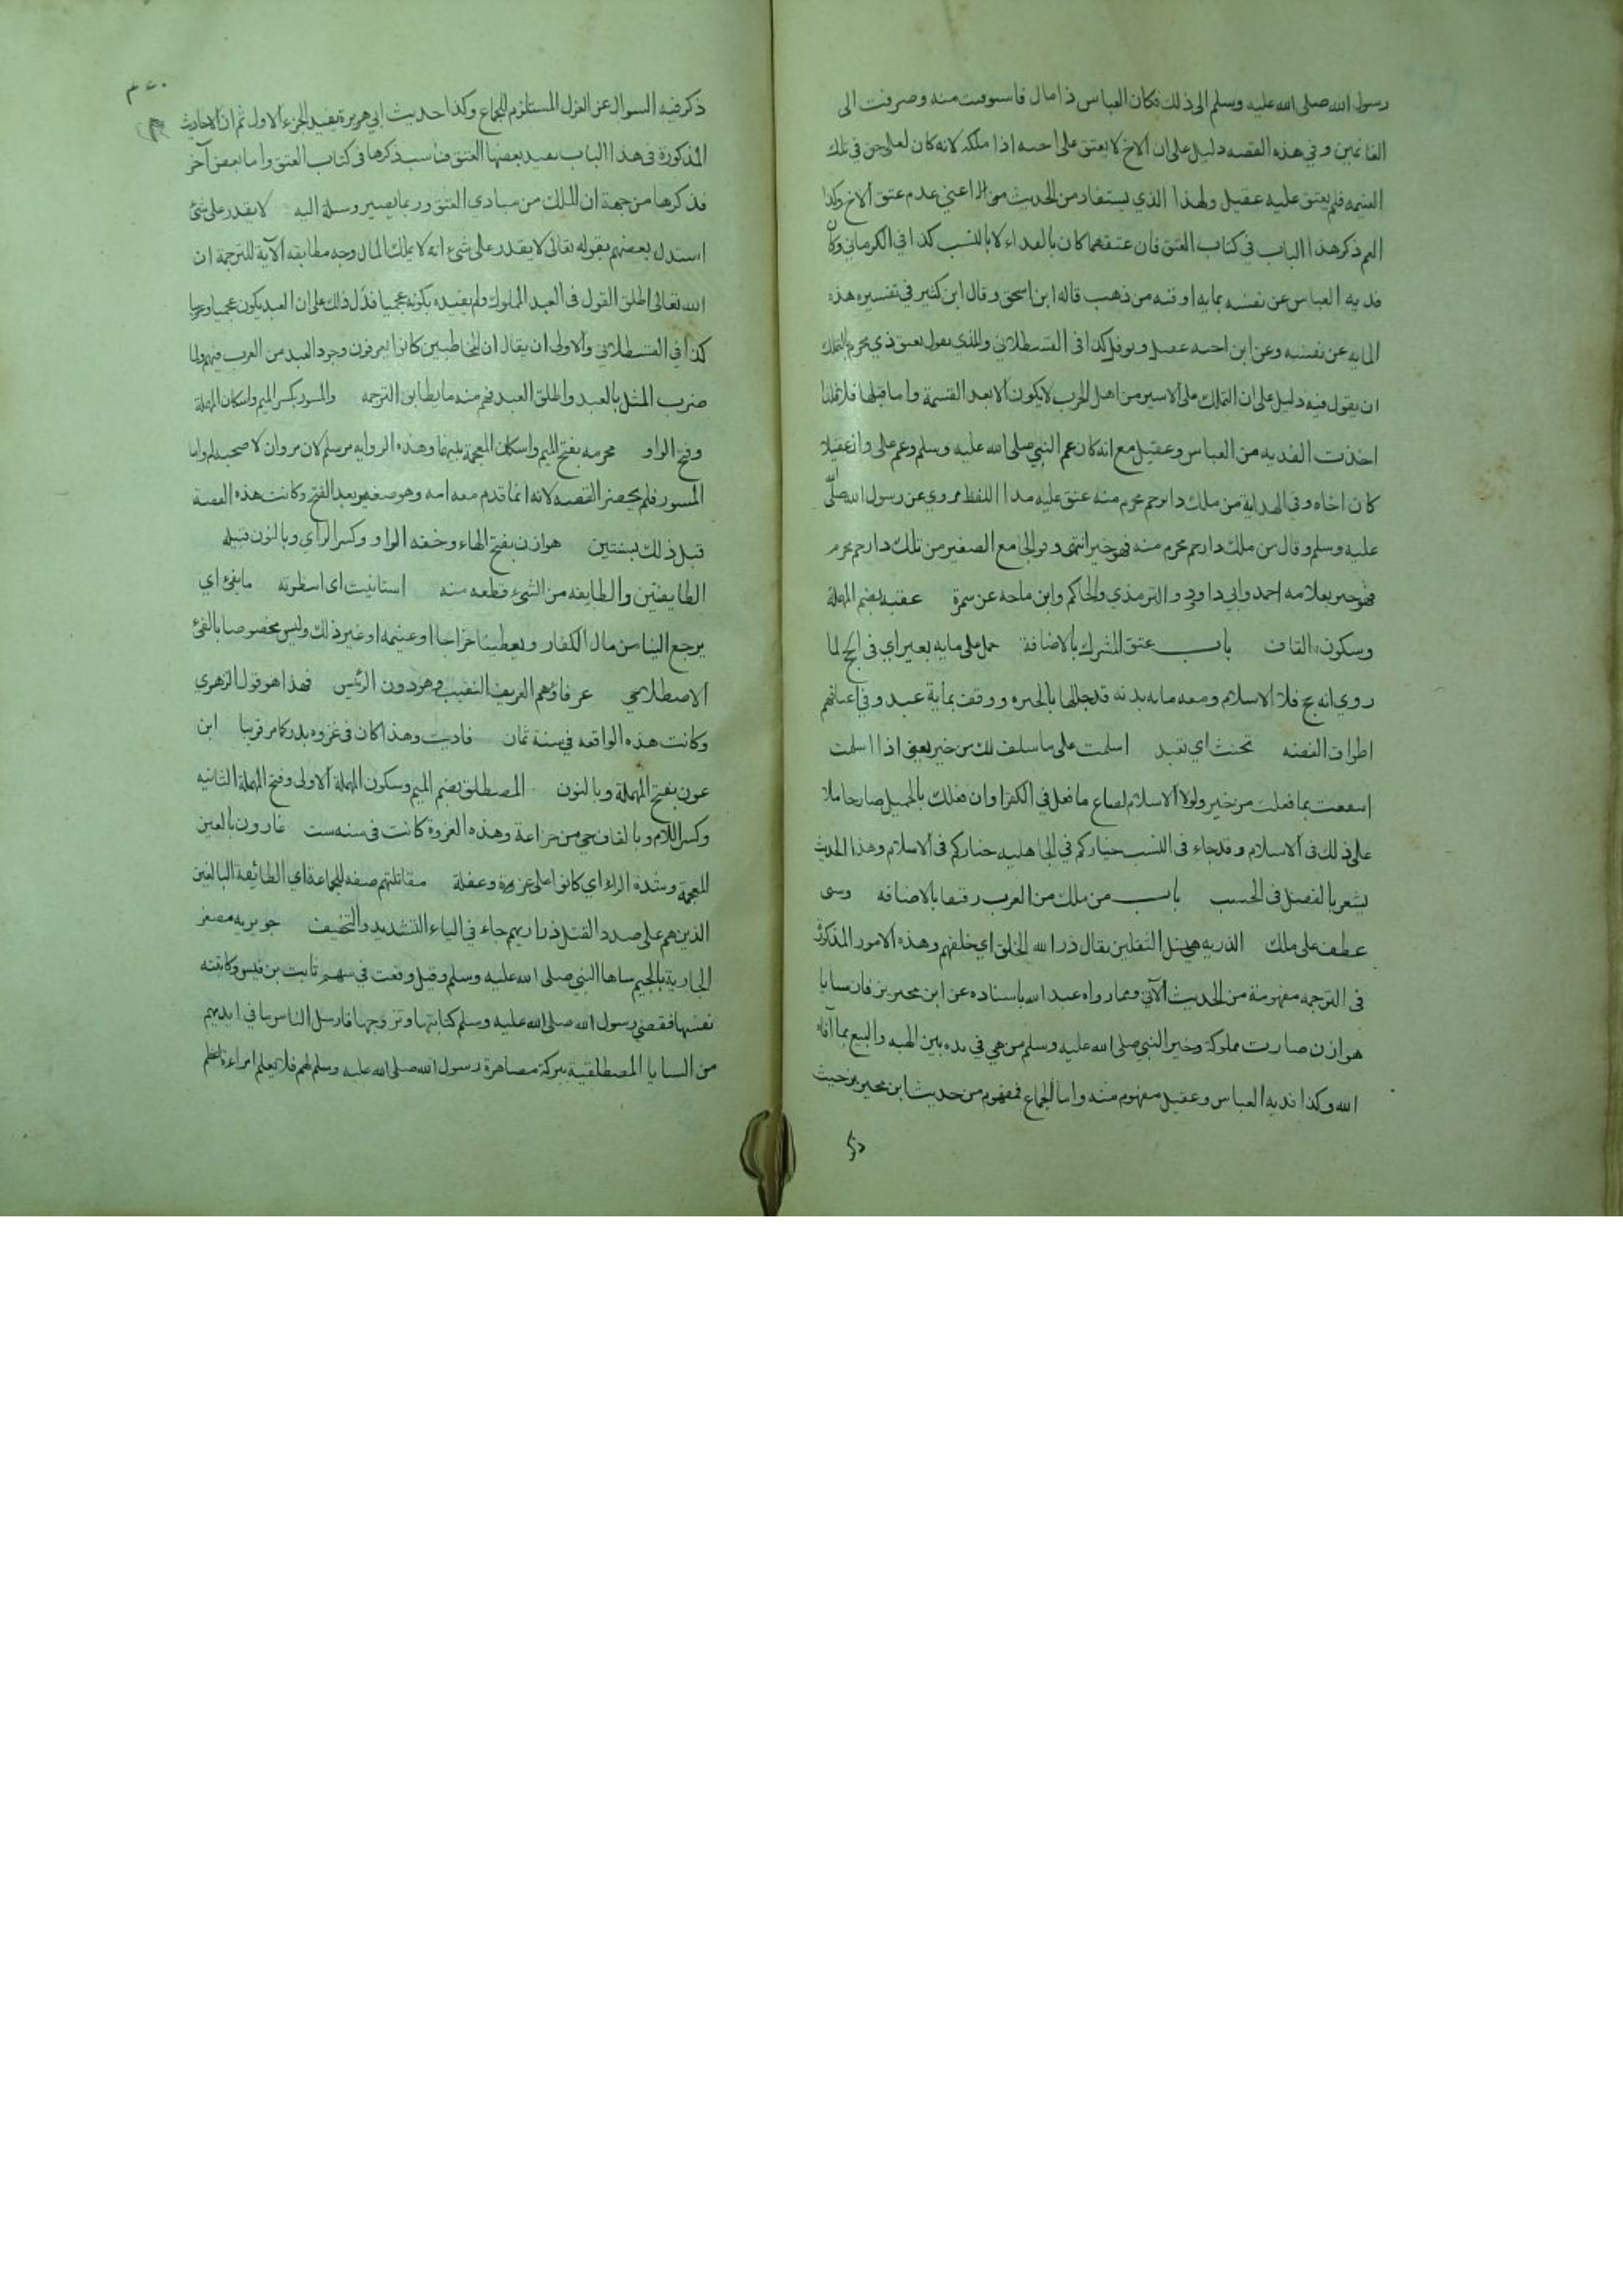 رسول الله صلى الله عليه وسلم الى ذلك فكان العباس ذا مال فاستوفيت منه وصرفت الى
الغانمين وفي هذه القصه دليل على ان الاخ لا يعتق على اخيه اذا ملكه لانه كان لعلي حق في تلك
الغنيمه فلم يعتق عليه عقيل ولهذا الذي يستفاد من الحديث اعني عدم عتق الاخ وكذا
العم ذكر هذا الباب في كتاب العتق فان عتقهما كان بالفداء لا بالنسب كذا في الكرماني وكان
فديه العباس عن نفسه بمايه اوقيه من ذهب قاله ابن اسحق وقال ابن كثير في تفسيره هذه
المايه عن نفسه وعن ابن اخيه عقيل ونوفل كذا في القسطلاني والذي يقول يعتق ذي محرم بالتملك
ان يقول فيه دليل على ان التملك على الاسير من اهل الحرب لا يكون الا بعد القسمة واما قبلها فلا فلذا
اخذت الفديه من العباس وعقيل مع انه كان عم النبي صلى الله عليه وسلم وعم علي وان عقيلا
كان اخاه وفي الهداية من ملك ذا رحم محرم منه عتق عليه هذا اللفظ مروي عن رسول الله صلى
عليه وسلم وقال من ملك ذا رحم محرم منه فهو حر انتهى وفي الجامع الصغير من ملك ذا رحم محرم
فهو حر بعلامه احمد وابي داود والترمذي والحاكم وابن ماجه عن سمرة عقبه بضم المهملة
وسكون القاف باب عتق المشرك بالاضافة حمل على مايه بعير اي في الحج لما
روي انه حج فى الاسلام ومعه مايه بدنه قد جللها بالحبره ووقف بماية عبد وفي اعناقهم
اطواق الفضه تحنث اي تعبد اسلمت على ما سلف لك من خير يعني اذا اسلمت
انتفعت بما فعلت من خير ولولا الاسلام لضاع ما فعل في الكفر وان فعلك بالجميل صار حاملا
على ذلك في الاسلام وقد جاء في النسب خياركم في الجاهليه خياركم في الاسلام وهذا الحديث
يشعر بالفضل في الحسب باب من ملك من العرب رقيقا بالاضافه وسبى
عطف على ملك الذريه هي نسل الثقلين يقال ذرا الله الخلق اي خلقهم وهذه الامور المذكورة
في الترجمه مفهومة من الحديث الآتي ومما رواه عبد الله باسناده عن ابن محيريز فان سبايا
هوازن صارت مملوكة وخير النبي صلى الله عليه وسلم من هي في يده بين الهبه والبيع بما افاء
الله وكذا فديه العباس وعقيل مفهوم منه واما الجماع فمفهوم من حديث ابن محيريز حيث
ذكر
ذكر فيه السوال عن العزل المستلزم للجماع وكذا حديث ابي هريرة يفيد الجزء الاول ثم ان الاحاديث
المذكورة في هذا الباب يفيد بعضها العتق فناسب ذكرها في كتاب العتق واما بعض آخر
فذكرها من جهة ان الملك من مبادى العتق وربما يصير وسيلة اليه لا يقدر على شئ
استدل بعضهم بقوله تعالى لا يقدر على شئ انه لا يملك المال وجه مطابقه الآية للترجمة ان
الله تعالى اطلق القول في العبد المملوك ولم يقيده بكونه عجميا فدل ذلك على ان العبد يكون عجميا وعربيا
كذا في القسطلاني والاولى ان يقال ان المخاطبين كانوا يعرفون وجود العبد من العرب فيهم ولما
ضرب المثل بالعبد واطلق العبد فهم منه ما يطابق الترجمه والمسور بكسر الميم واسكان المهملة
وفتح الواو مخرمه بفتح الميم واسكان المعجمة بينهما وهذه الروايه مرسلة لان مروان لا صحبه له واما
المسور فلم يحضر القصه لانه انما قدم مع امه وهو صغير بعد الفتح وكانت هذه القصة
قبل ذلك بسنتين هوازن بفتح الهاء وخفه الواو وكسر الزاي وبالنون قبيله
الطايفتين والطايفه من الشئ قطعه منه استانيت اى انتظرته ما يفئ اي
يرجع الينا من مال الكفار ويعطينا خراجا او غنيمه او غير ذلك وليس مخصوصا بالفئ
الاصطلاحي عرفاؤهم العريف النقيب وهو دون الرئيس فهذا هو قول الزهري
وكانت هذه الواقعه في سنة ثمان فاديت وهذا كان في غزوه بدر كما مر قريبا ابن
عون بفتح المهملة وبالنون المصطلق بضم الميم وسكون المهملة الاولى وفتح المهملة الثانيه
وكسر اللام وبالقاف حي من خزاعة وهذه الغزوة كانت في سنه ست غارون بالغين
المعجمة وشدة الراء اي كانوا على غرة وغفلة مقاتلتهم صفه للجماعة اي الطائيفة البالغين
الذين هم على صدد القتل ذراريهم جاء في الياء التشديد والتخفيف جويريه مصغر
الجارية بالجيم سباها النبي صلى الله عليه وسلم وقيل وقعت في سهم ثابت بن قيس وكاتبته
نفسها فقضى رسول الله صلى الله عليه وسلم كتابتها وتزوجها فارسل الناس ما في ايديهم
من السبايا المصطلقية ببركة مصاهرة رسول الله صلى الله عليه وسلم لهم فلا يعلم امراءة اعظم